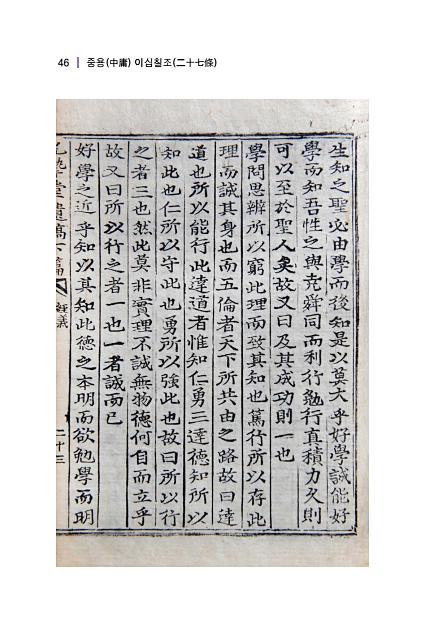 46 | 중용(中庸) 이십칠조(二十七條)
生知之聖必由學而後知是以莫大乎好學誠能好
學而知吾性之與堯舜同而利行勉行真積力久則
可以至於聖人矣故又曰及其成功則一也
學問思辨所以窮此理而致其知也篤行所以存此
理而誠其身也而五倫者天下所共由之路故曰達
道也所以能行此達道者惟知仁勇三達德知所以
知此也仁所以守此也勇所以強此也故曰所以行
之者三也然此莫非實理不誠無物德何自而立乎
故又曰所以行之者一也一者誠而已
好學之近乎知以其知此德之本明而欲勉學而明
堂遺稿下篇 經議 二十三